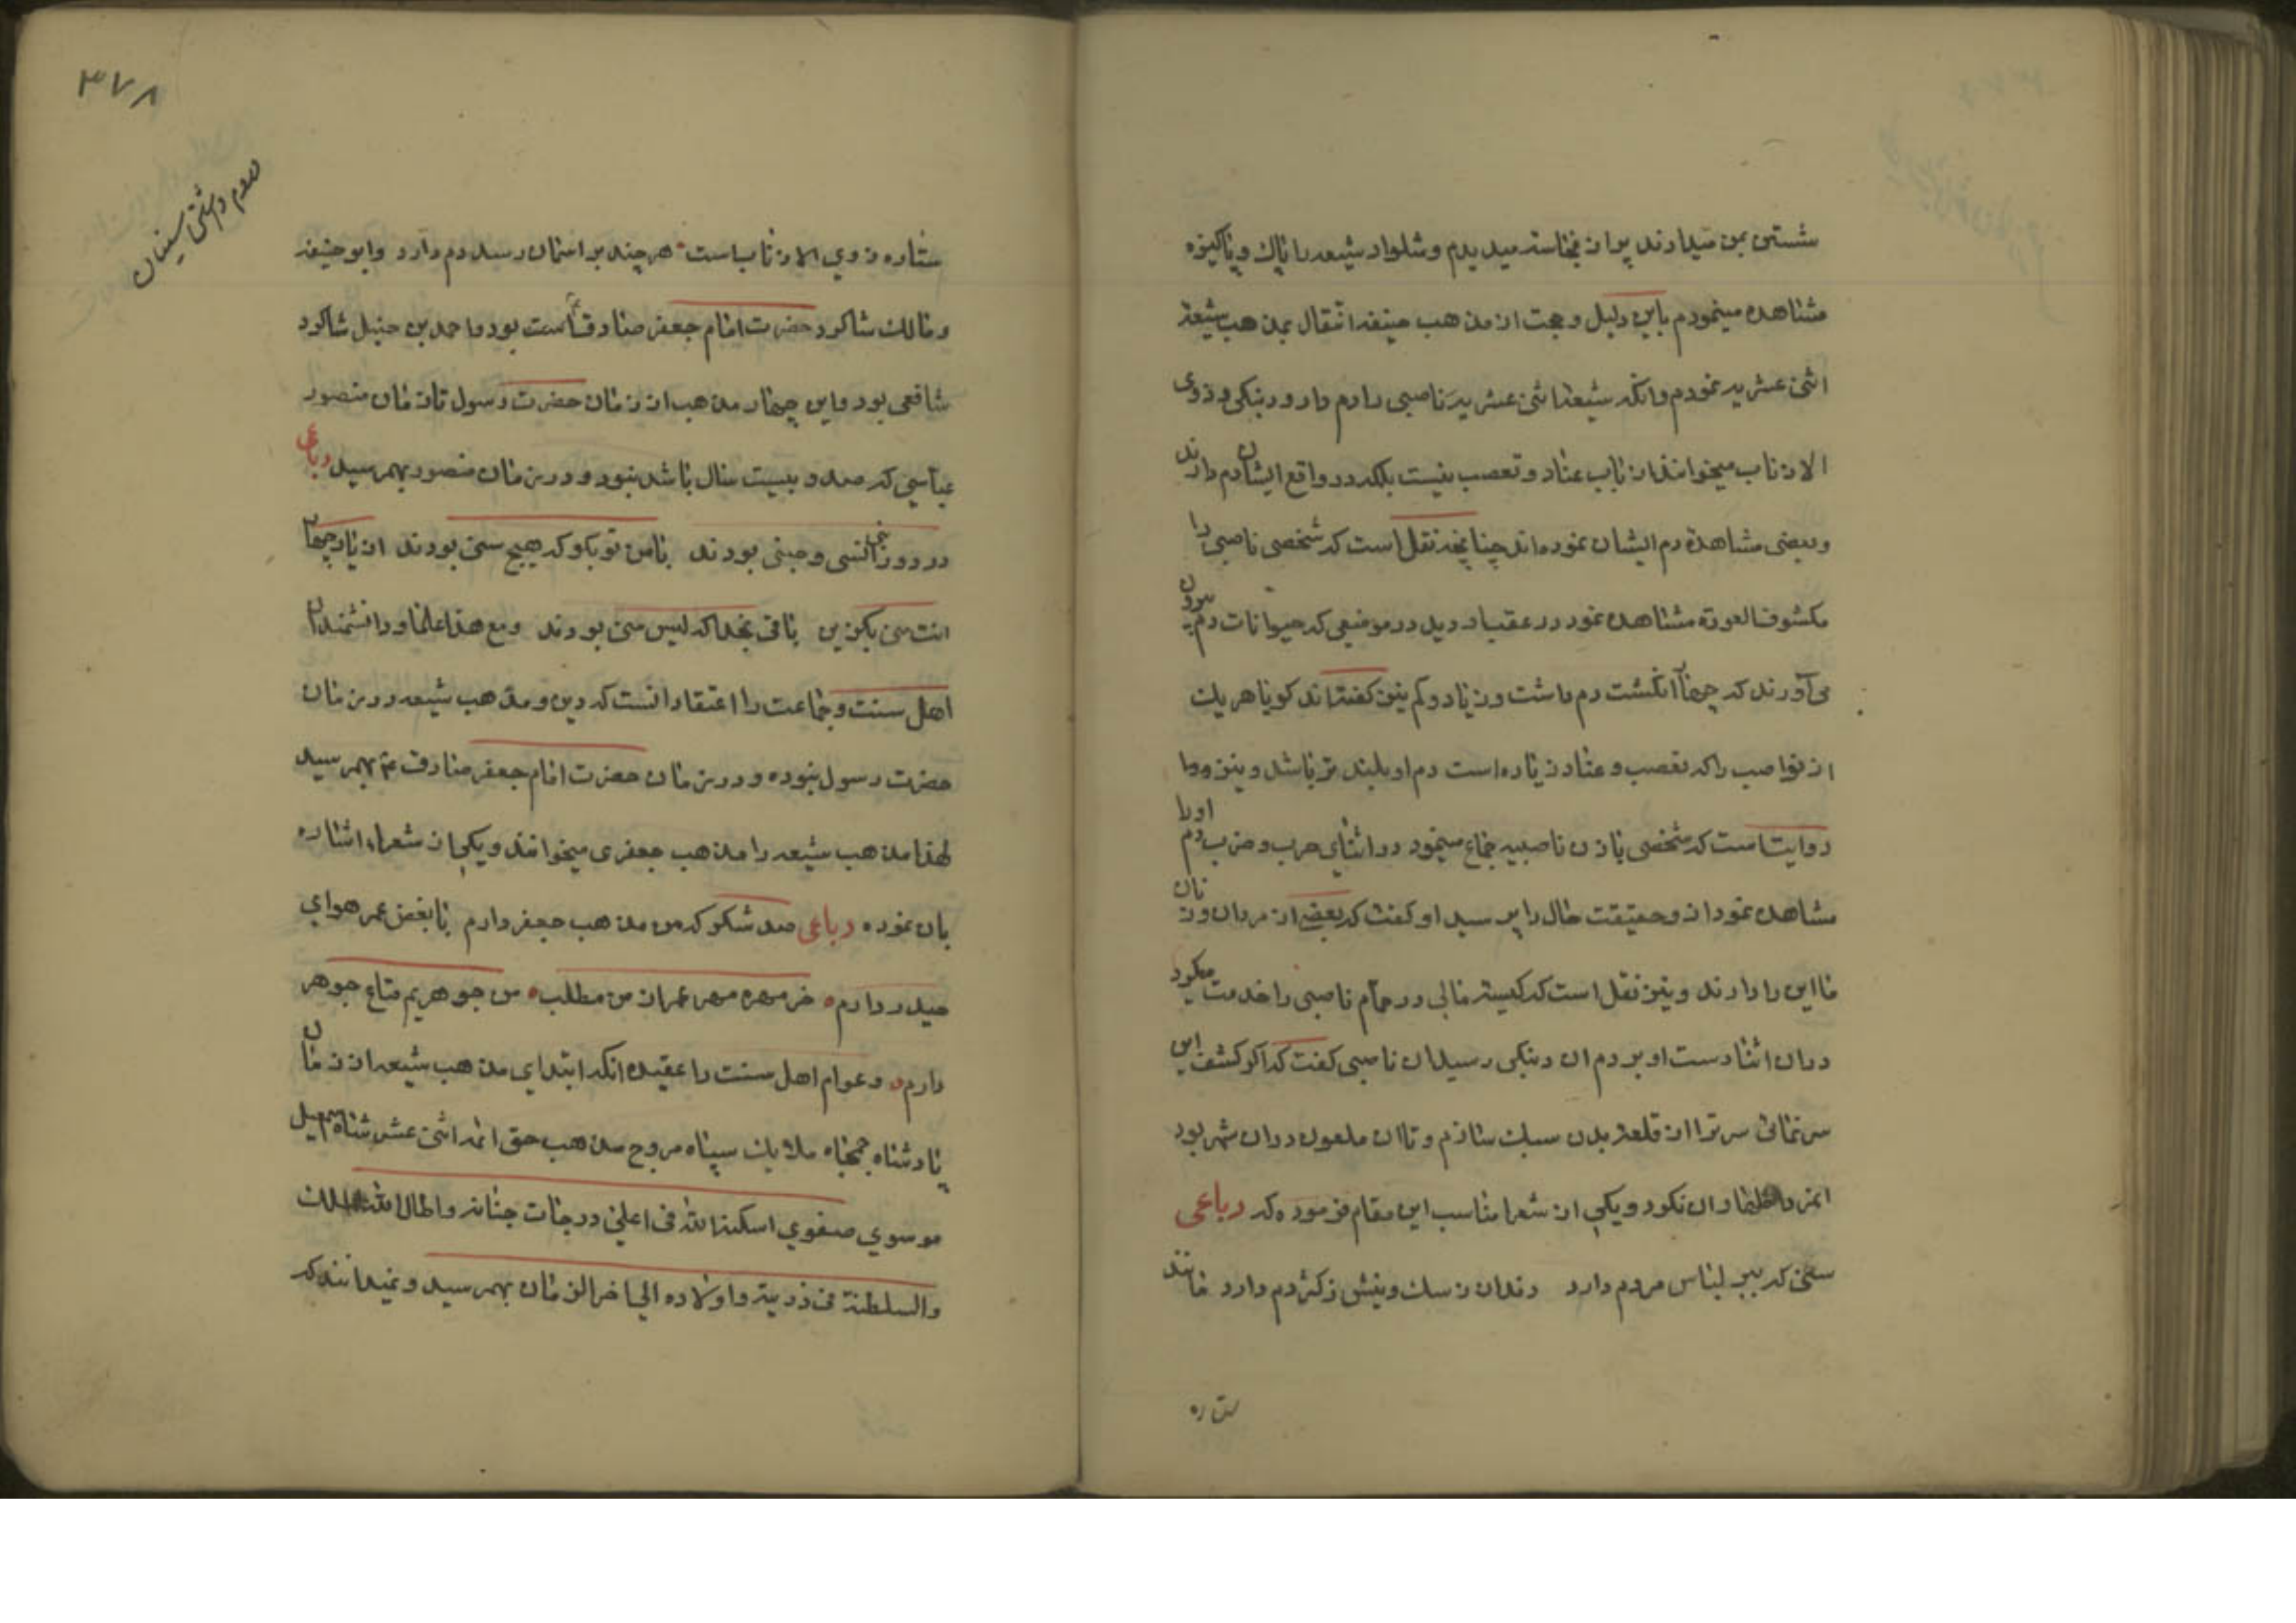 شستن بمن میدادند پر از نجاسته میدیدم و شلوار شیعه را پاک و پاکیزه
مشاهده مینمودم باین دلیل و حجت از مذهب حنیفه انتقال بمذهب شیعهٔ
اثنی عشریه نمودم وانکه شیعهٔ اثنی عشریه ناصبی را دم دار و دنبکی و ذوی
الاذناب میخوانند از باب عناد و تعصب نیست بلکه در واقع ایشان دم دارند
و بعضی مشاهدهٔ دم ایشان نموده‌اند چنانچه نقل است که شخصی ناصبی را
مکشوف العورة مشاهده نمود در عقب او دید در موضعی که حیوانات دم بیرون
می‌آورند که چهار انگشت دم داشت و زیاد و کم نیز گفته‌اند گویا هر یک
از نواصب را که تعصب و عناد زیاده است دم او بلند تر باشد و نیز
روایت است که شخصی با زن ناصبیه جماع مینمود در اثنای حرب و ضرب دم او را
مشاهده نمود از و حقیقت حال را پرسید او گفت که بعضی از مردان و زنان
ما این را دارند و نیز نقل است که کیسه مالی در حمام ناصبی را خدمت میکرد
دران اثنا دست او بر دم ان دنبکی رسید ان ناصبی گفت که اگر کشف این
سر نمائی سر ترا از قلعهٔ بدن سبک سازم و تا ان ملعون دران شهر بود
ان نکرد و یکی از شعرا مناسب این مقام فرموده که رباعی
سنی که ببر لباس مردم دارد دندان ز سک و نیش ز کژدم دارد مانند
ستاره
۳۷۸
دم داشتن سنیان
ستاره ذوی الاذناب است هر چند بر اسمان رسد دم دارد و ابو حنیفه
و مالک شاکرد حضرت امام جعفر صادق است بود و احمد بن حنبل شاکرد
شافعی بود و این چهار مذهب از زمان حضرت رسول تا زمان منصور
عباسی که صد و بیست سال باشد نبود و در زمان منصور بهمرسید رباعی
در روز انسی و جنی بودند با من تو بکو که هیچ سنی بودند از یار چهار
بافی بخدا که لیس منی بودند و مع هذا علما و دانشمندان
اهل سنت و جماعت را اعتقاد انست که دین و مذهب شیعه در زمان
حضرت رسول نبوده و در زمان حضرت امام جعفر صادق ع بهمرسید
لهذا مذهب شیعه را مذهب جعفری میخوانند و یکی از شعرا اشاره
بان نموده رباعی صد شکر که من مذهب جعفر دارم با بغض عمر هوای
حیدر دارم خر مهره مهر عمر از من مطلب من جوهریم متاع جوهر
دارم و عوام اهل سنت را عقیده انکه ابتدای مذهب شیعه از زمان
پادشاه جمجاه ملایک سپاه مروج مذهب حق ائمه اثنی عشر شاه اسمعیل
موسوی صفوی اسکنه الله فی اعلی درجات جنانه و اطال الله الملک
والسلطنة فی ذریته و اولاده الی اخر الزمان بهمرسید و نمیدانند که